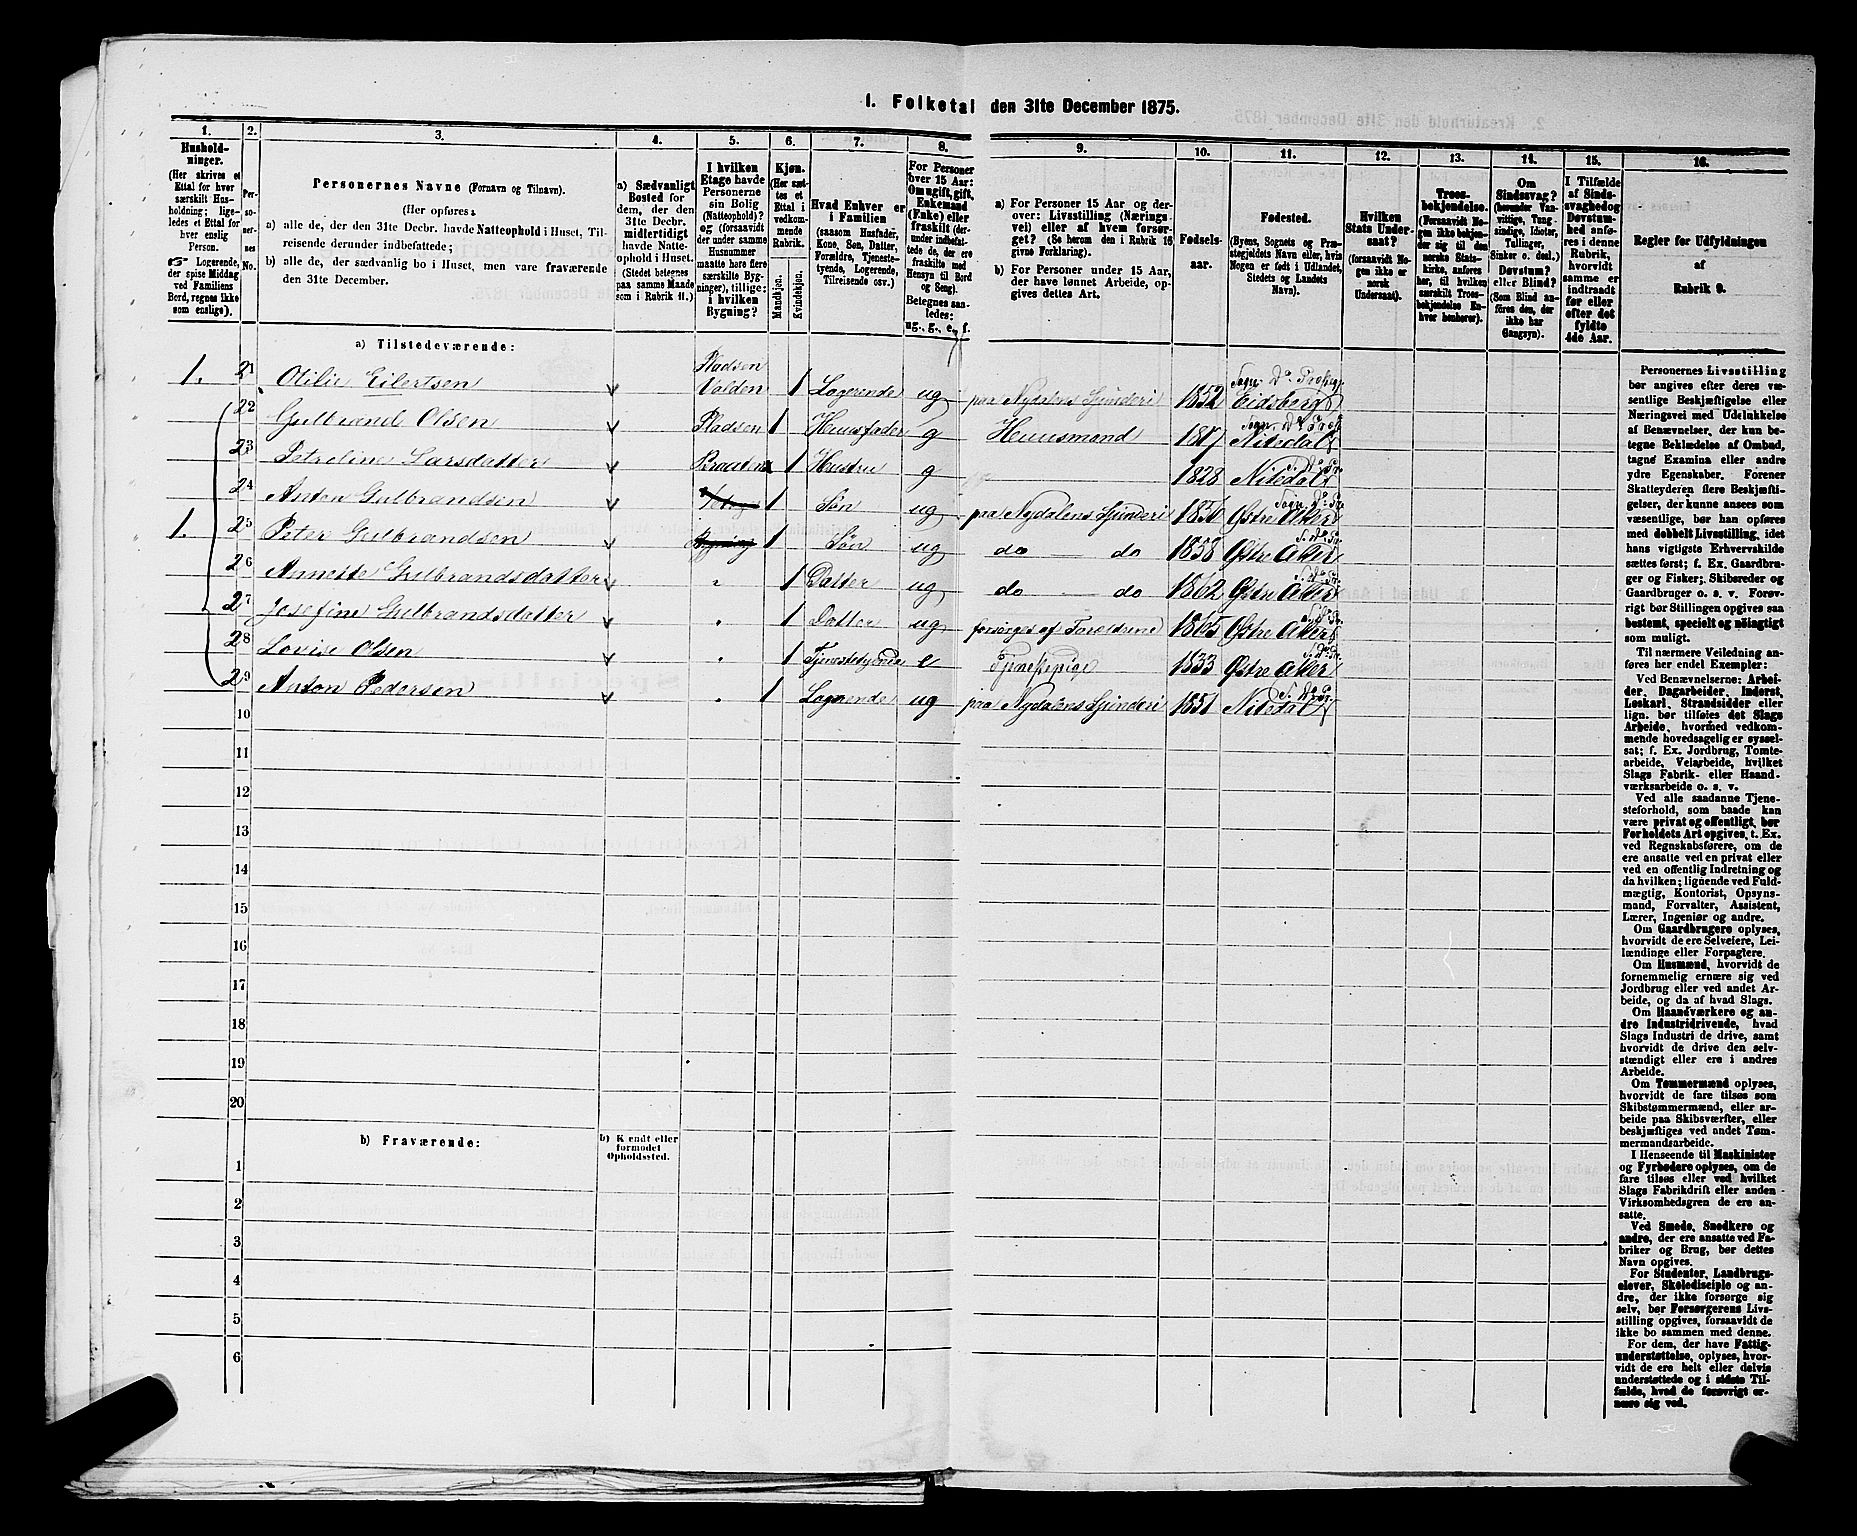 1. Folketal den 31te December 1875.
1. 2. 3. 4. 5. 6. 7. 8. 9. 10. 11. 12. 13. 14. 15. 16.
Hushold-
ninger.
(Her skrives et
Ettal for hver
særskilt Hus-
holdning; lige-
ledes et Ettal for
hver enslig
Person.
☞ Logerende,
der spise Middag
ved Familiens
Bord, regnes ikke
som enslige).
Per-
so-
ner-
nes
No.
Personernes Navne (Fornavn og Tilnavn).
(Her opføres:
a) alle de, der den 31te Decbr. havde Natteophold i Huset, Til-
reisende derunder indbefattede;
b) alle de, der sædvanlig bo i Huset, men vare fraværende
den 31te December.
a) Sædvanligt
Bosted for
dem, der den
31te Decbr.
midlertidigt
havde Natte-
ophold i Huset.
(Stedet betegnes
paa samme Maade
som i Rubrik 11.)
I hvilken
Etage havde
Personerne
sin Bolig
(Natteophold)?
og (forsaavidt
der under samme
Husnummer
maatte høre flere
særskilte Byg-
ninger), tillige:
i hvilken
Bygning?
Kjøn.
(Her sæt-
tes et
Ettal i
vedkom-
mende
Rubrik.
Mandkjøn.
Kvindekjøn.
Hvad Enhver er
i Familien
(saasom Husfader,
Kone, Søn, Datter,
Forældre, Tjeneste-
tyende, Logerende,
Tilreisende osv.)
For Personer
over 15 Aar:
Om ugift, gift,
Enkemand
(Enke) eller
fraskilt (der-
under indbefat-
tede de, der ere
fraskilte med
Hensyn til Bord
og Seng).
Betegnes saa-
ledes:
ug., g., e., f.
a) For Personer 15 Aar og der-
over: Livsstilling (Nærings-
vei) eller af hvem forsør-
get? (Se herom den i Rubrik 16
givne Forklaring).
b) For Personer under 15 Aar,
der have lønnet Arbeide, op-
gives dettes Art.
Fødsels-
aar.
Fødested.
(Byens, Sognets og Præ-
stegjeldets Navn eller, hvis
Nogen er født i Udlandet,
Stedets og Landets
Navn).
Hvilken
Stats Under-
saat?
(forsaavidt No-
gen ikke er
norsk
Undersaat).
Troes-
bekjendelse.
(Forsaavidt No-
gen ikke bekjen-
der sig til den
norske Stats-
kirke, anføres
her, til hvilken
særskilt Troes-
bekjendelse En-
hver henhører).
Om
Sindssvag?
(herunder Van-
vittige, Tung-
sindige, Idioter,
Tullinger,
Sinker o. desl.)
Døvstum?
eller Blind?
(Som Blind an-
føres den, der
ikke har
Gangsyn).
I Tilfælde
af Sinds-
svaghed og
Døvstum-
hed anfø-
res i denne
Rubrik,
hvorvidt
samme er
indtraadt
før eller
efter det
fyldte
4de Aar.
Regler for Udfyldningen
af
Rubrik 9.
a) Tilstedeværende:
1. 21 Otilie Eilertsen v Pladsen Volden 1 Logerende ug paa Nydalens Spinderi 1852 Sogn Do Præstegj. Eidsberg
22 Gulbrand Olsen v Pladsen 1 Huusfader g Huusmand 1817 Sogn. Do Præst Nitedal
23 Petroline Larsdatter v Braaten 1 Hustru g 1828 S. Do Pr. Nitedal
24 Anton Gulbrandsen v 1 Søn ug paa Nydalens Spinderi 1856 Sogn. Do Pr Østre Aker
1. 25 Peter Gulbrandsen v 1 Søn ug do do 1858 S. Do Pr. Østre Aker
26 Annette Gulbrandsdatter v " 1 Datter ug do do 1862 S. Do Pr. Østre Aker
27 Josefine Gulbrandsdatter v " 1 Datter ug forsørges af Foreldrene 1865 S. Do Pr. Østre Aker
28 Lovise Olsen v " 1 Tjenestetyende e Tjenestepige 1833 S. Do Pr. Østre Aker
29 Anton Pedersen v " 1 Logerende ug paa Nydalens Spinderi 1851 S. Do Pr Nitedal
10
11
12
13
14
15
16
17
18
19
20
b) Fraværende:
b) Kjendt eller
formodet
Opholdssted.
1
2
3
4
5
6
Personernes Livsstilling
bør angives efter deres væ-
sentlige Beskjæftigelse eller
Næringsvei med Udelukkelse
af Benævnelser, der kun be-
tegne Beklædelse af Ombud,
tagne Examina eller andre
ydre Egenskaber. Forener
Skatteyderen flere Beskjæfti-
gelser, der kunne ansees som
væsentlige, bør han opføres
med dobbelt Livsstilling, idet
hans vigtigste Erhvervskilde
sættes først; f. Ex. Gaardbru-
ger og Fisker; Skibsreder og
Gaardbruger o. s. v. Forøv-
rigt bør Stillingen opgives saa
bestemt, specielt og nøiagtigt
som muligt.
Til nærmere Veiledning an-
føres her endel Exempler:
Ved Benævnelserne: Arbei-
der, Dagarbeider, Inderst,
Løskarl, Strandsidder eller
lign. bør tilføies det Slags
Arbeide, hvormed vedkom-
mende hovedsagelig er syssel-
sat; f. Ex. Jordbrug, Tomte-
arbeide, Veiarbeide, hvilket
Slags Fabrik- eller Haand-
værksarbeide o. s. v.
Ved alle saadanne Tjene-
steforhold, som baade kan
være privat og offentligt, bør
Forholdets Art opgives, t. Ex.
ved Regnskabsførere, om de
ere ansatte ved en privat eller
ved en offentlig Indretning og
da hvilken; lignende ved Fuld-
mægtig, Kontorist, Opsyns-
mand, Forvalter, Assistent,
Lærer, Ingeniør og andre.
Om Gaardbrugere oplyses,
hvorvidt de ere Selveiere, Lei-
lændinge eller Forpagtere.
Om Husmænd, hvorvidt de
fornemmelig ernære sig ved
Jordbrug eller ved andet Ar-
beide, og da af hvad Slags.
Om Haandværkere og an-
dre Industridrivende, hvad
Slags Industri de drive, samt
hvorvidt de drive den selv-
stændigt eller ere i andres
Arbeide.
Om Tømmermænd oplyses,
hvorvidt de fare tilsøs som
Skibstømmermænd, eller ar-
beide paa Skibsværfter, eller
beskjæftiges ved andet Tøm-
mermandsarbeide.
I Henseende til Maskinister
og Fyrbødere oplyses, om de
fare tilsøs eller ved hvilket
Slags Fabrikdrift eller anden
Virksomhedsgren de ere an-
satte.
Ved Smede, Snedkere og
andre, der ere ansatte ved Fa-
briker og Brug, bør dettes
Navn opgives.
For Studenter, Landbrugs-
elever, Skoledisciple og an-
dre, der ikke forsørge sig
selv, bør Forsørgerens Livs-
stilling opgives, forsaavidt de
ikke bo sammen med denne.
For dem, der have Fattig-
understøttelse, oplyses, hvor-
vidt de ere helt eller delvis
understøttede og i sidste Til-
fælde, hvad de forøvrigt er-
nære sig ved.